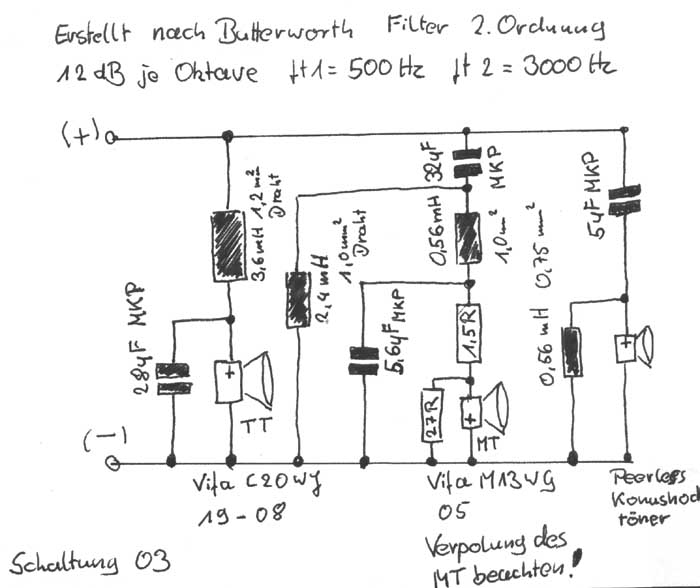 Erstellt nach Butterworth Filter 2. Ordnung
12 dB je Oktave ft1 = 500 Hz ft 2 = 3000 Hz
(+)
3,6mH 1,2m²
Draht
28µF MKP
TT
2,4mH
1,0mm²
Draht
32µF
MKP
0,56mH
1,0m²
5,6µF MKP
1,5R
27R
MT
5µF MKP
0,56 mH
0,75 mm²
(-)
Vifa C20WJ
19-08
Vifa M13WG
05
Peerless
Konushoch
töner
Verpolung des
MT beachten!
Schaltung 03